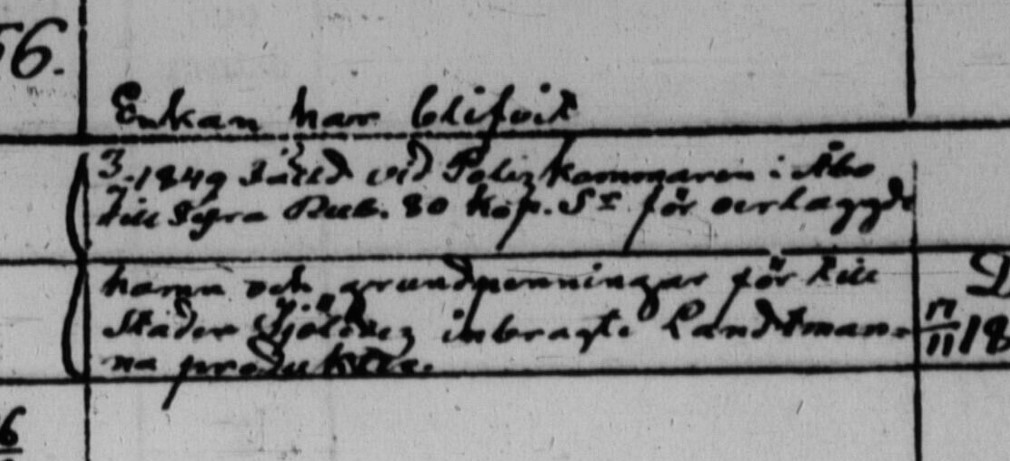 56.
Enkan har blifvit
3/7 1849 Fälld vid Poliskammaren i Åbo
till Sjra Rub. 80 Kop. Sr för oerlaggde
hamn och grundpenningar för till
Staden Sjöledes inbragte Landtman-
na produkter.
D
17/11 18
6